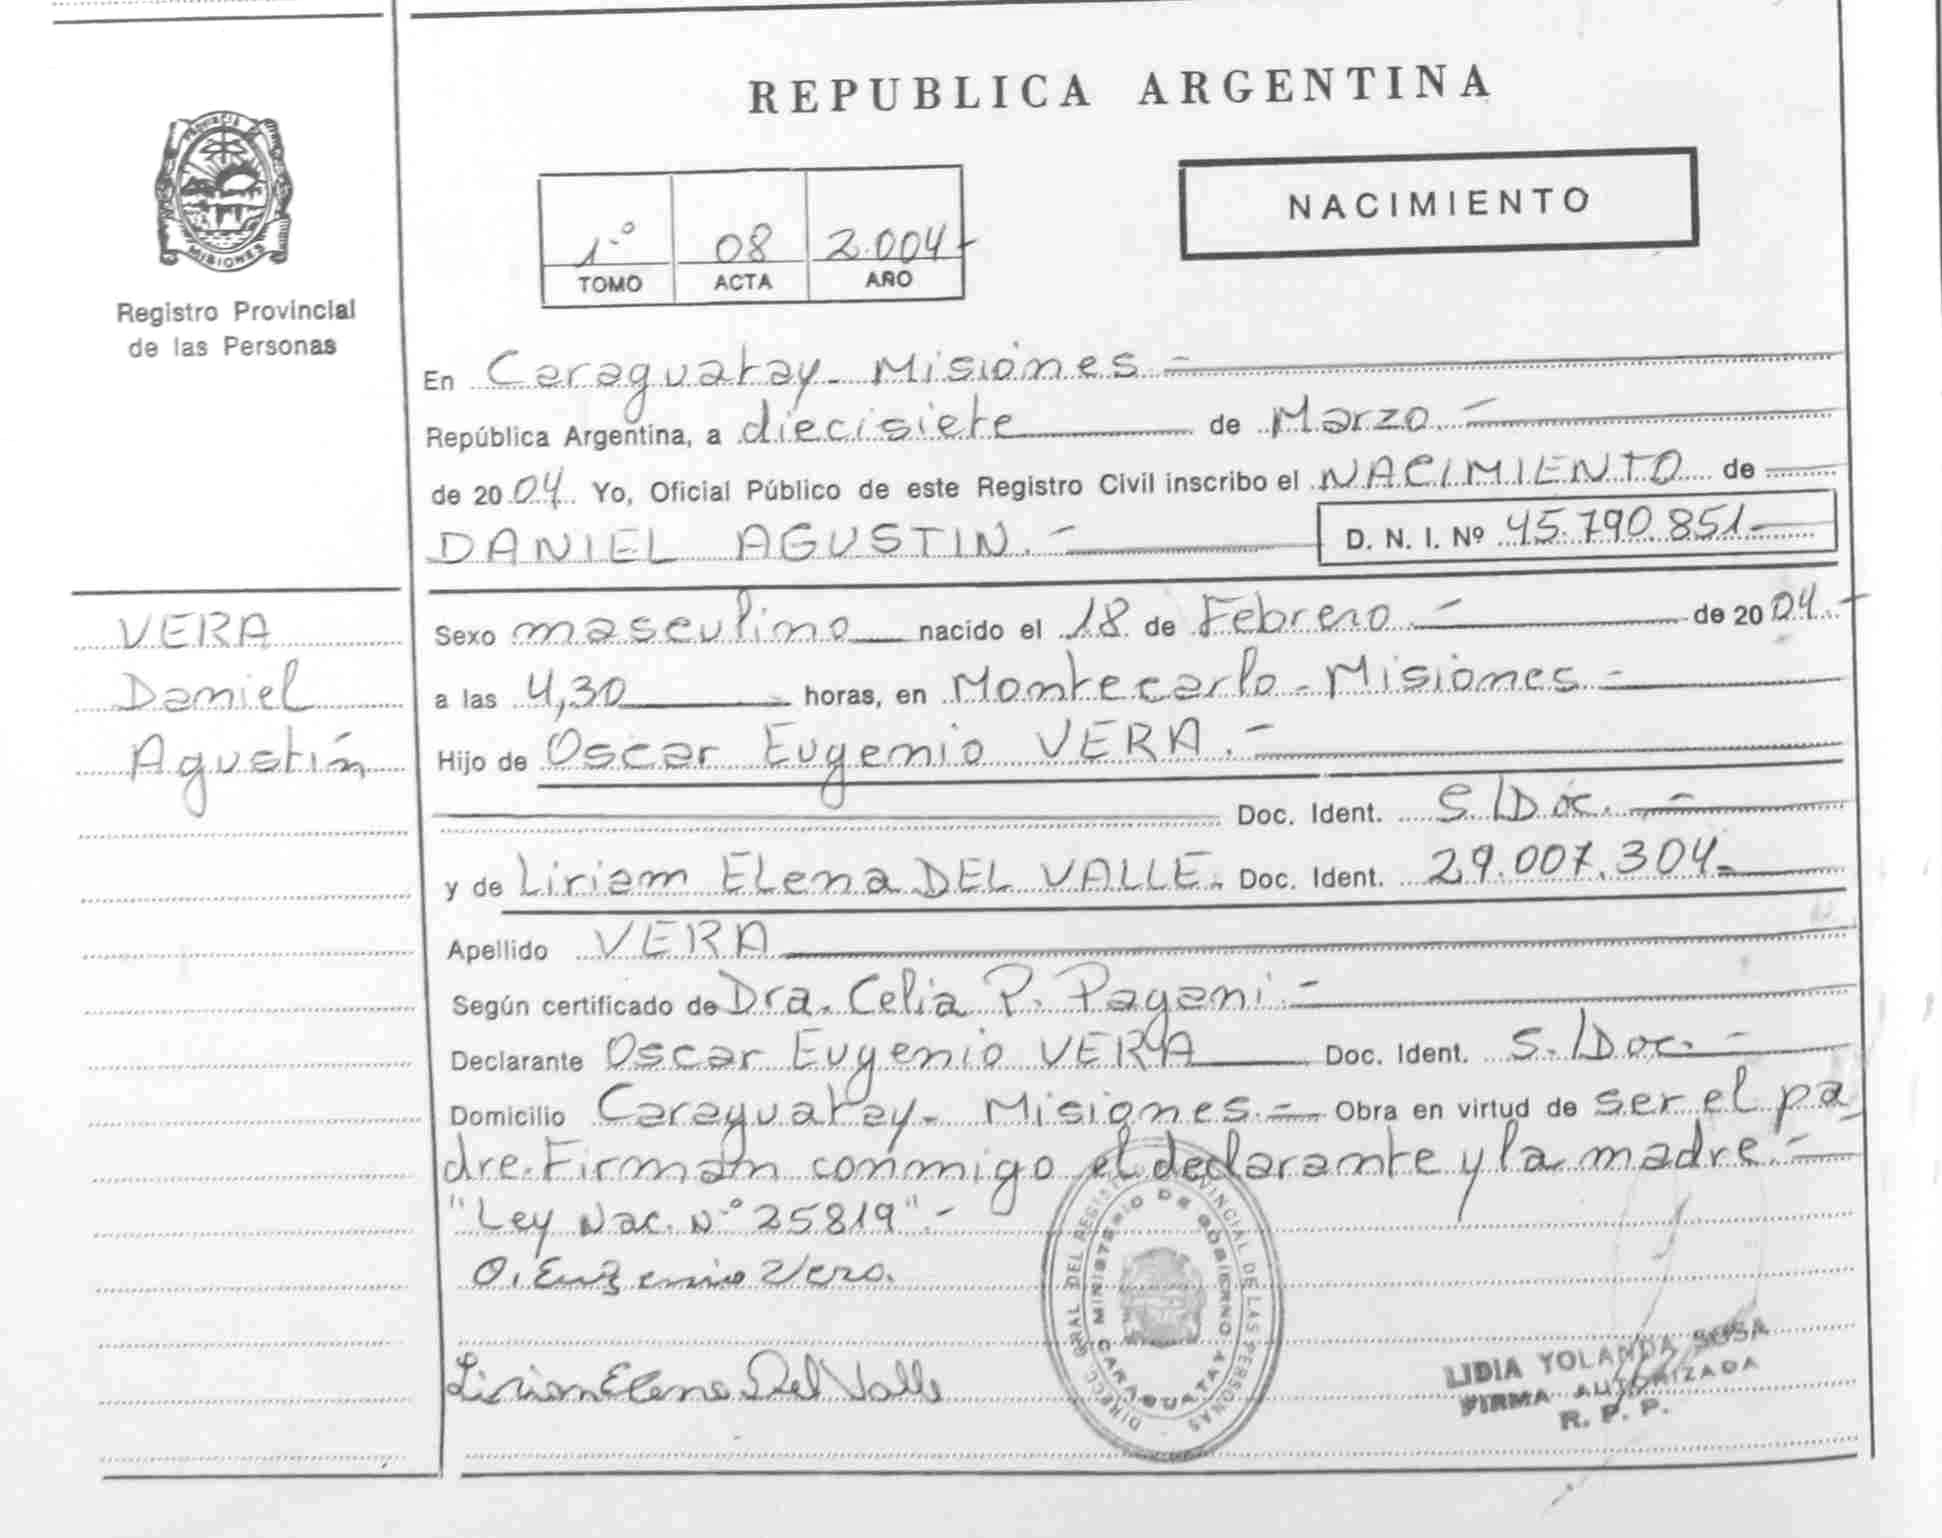 REPUBLICA ARGENTINA
PROVINCIA DE
MISIONES
Registro Provincial
de las Personas
NACIMIENTO
1.º 08 2.004-
TOMO ACTA AÑO
En Caraguatay - Misiones -
República Argentina, a diecisiete de Marzo. -
de 2004 Yo, Oficial Público de este Registro Civil inscribo el NACIMIENTO de
DANIEL AGUSTIN. - D. N. I. Nº 45.790.851-
VERA
Daniel
Agustín
Sexo masculino nacido el 18 de Febrero - de 2004.-
a las 4,30 horas, en Montecarlo - Misiones -
Hijo de Oscar Eugenio VERA. -
Doc. Ident. S./Doc. -
y de Liriam Elena DEL VALLE. Doc. Ident. 29.007.304-
Apellido VERA
Según certificado de Dra. Celia P. Pagani. -
Declarante Oscar Eugenio VERA Doc. Ident. S./Doc. -
Domicilio Caraguatay - Misiones. - Obra en virtud de ser el pa
dre. Firman conmigo el declarante y la madre. -
"Ley Nac. N.º 25819". -
O. Eugenio Vera.
Liriam Elena Del Valle
DIRECC. GRAL. DEL REGISTRO PROVINCIAL DE LAS PERSONAS
MINISTERIO DE GOBIERNO
CARAGUATAY
LIDIA YOLANDA SOSA
FIRMA AUTORIZADA
R. P. P.